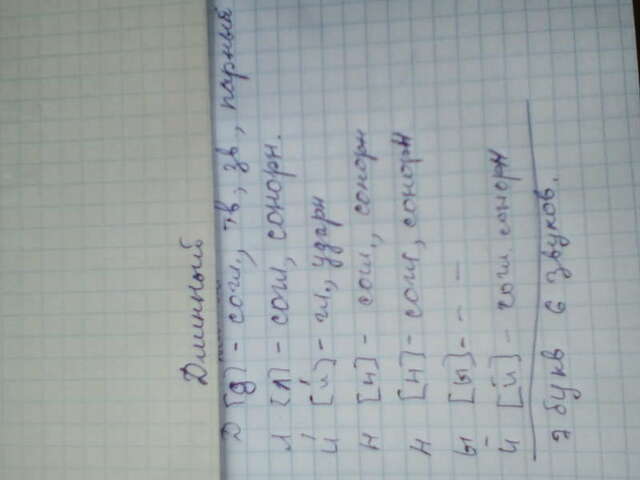 Длинный
Д [д] - согл., тв, зв, парный
Л [л] - согл, сонорн.
И [и́] - гл., ударн
Н [н] - согл., сонорн
Н [н] - согл, сонорн
Ы [ы] - - -
Й [й] - согл сонорн
7 букв 6 звуков.